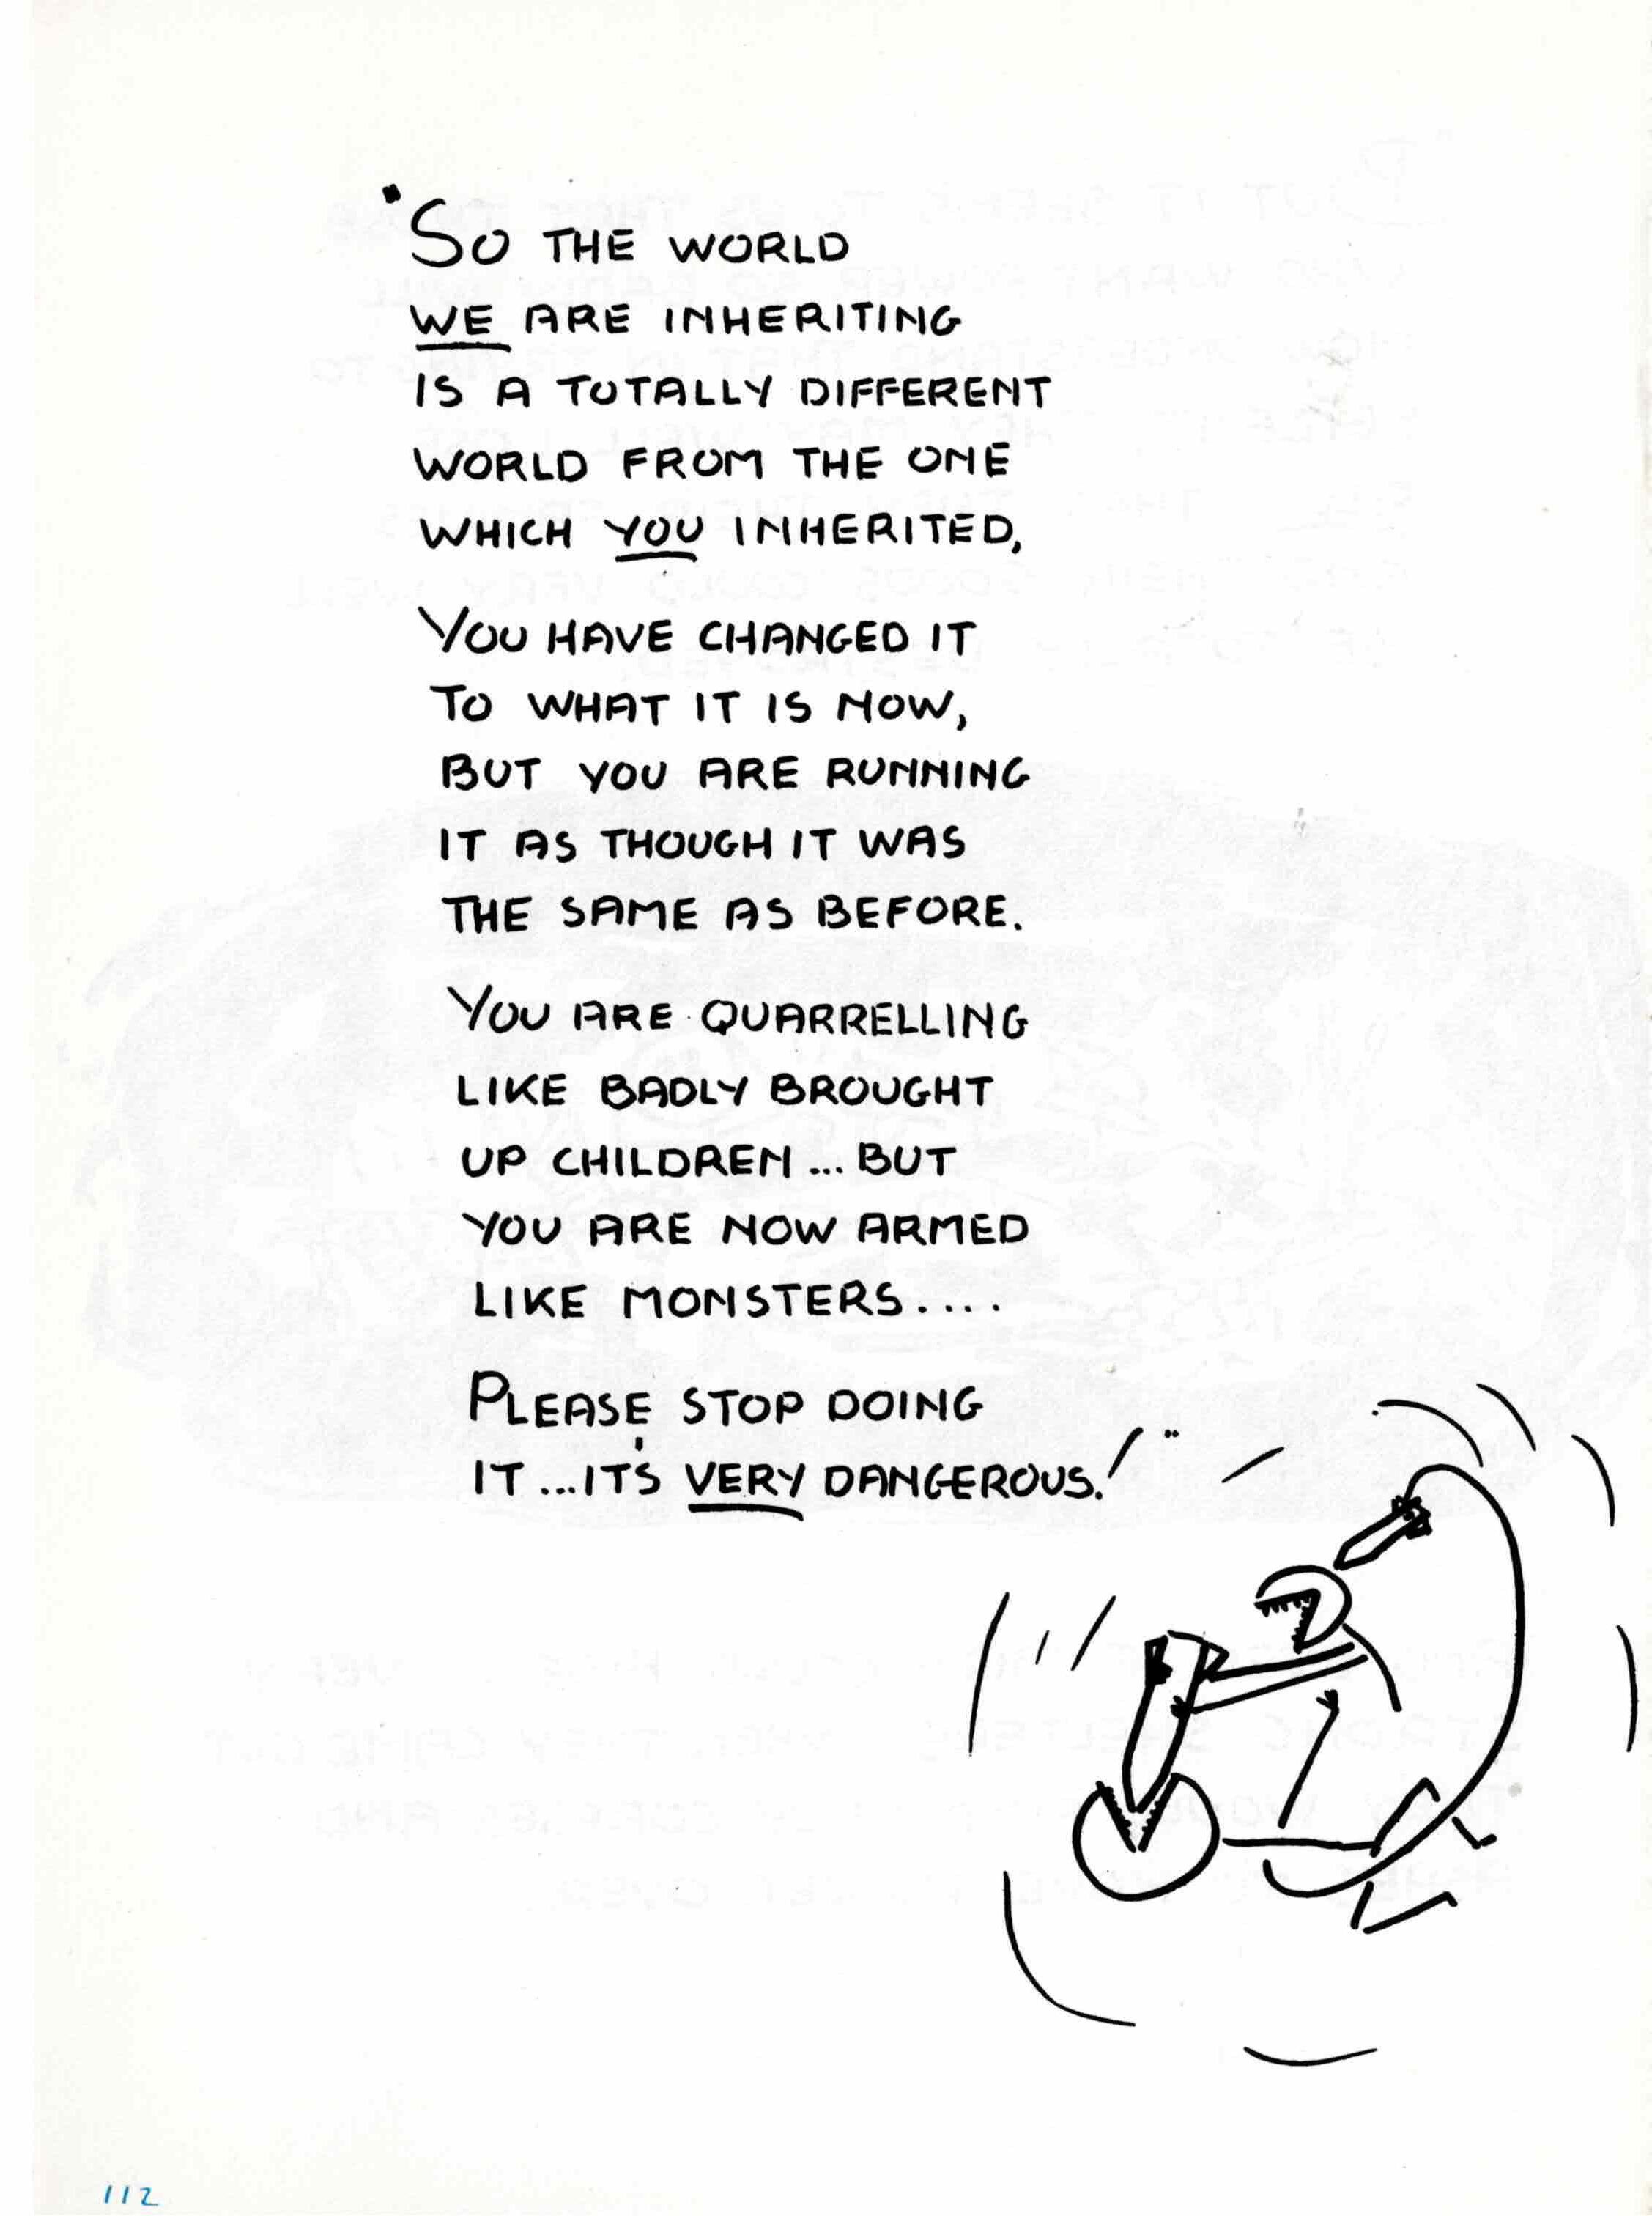 "SO THE WORLD
WE ARE INHERITING
IS A TOTALLY DIFFERENT
WORLD FROM THE ONE
WHICH YOU INHERITED,
YOU HAVE CHANGED IT
TO WHAT IT IS NOW,
BUT YOU ARE RUNNING
IT AS THOUGH IT WAS
THE SAME AS BEFORE.
YOU ARE QUARRELLING
LIKE BADLY BROUGHT
UP CHILDREN ... BUT
YOU ARE NOW ARMED
LIKE MONSTERS....
PLEASE STOP DOING
IT ...IT'S VERY DANGEROUS!"
112